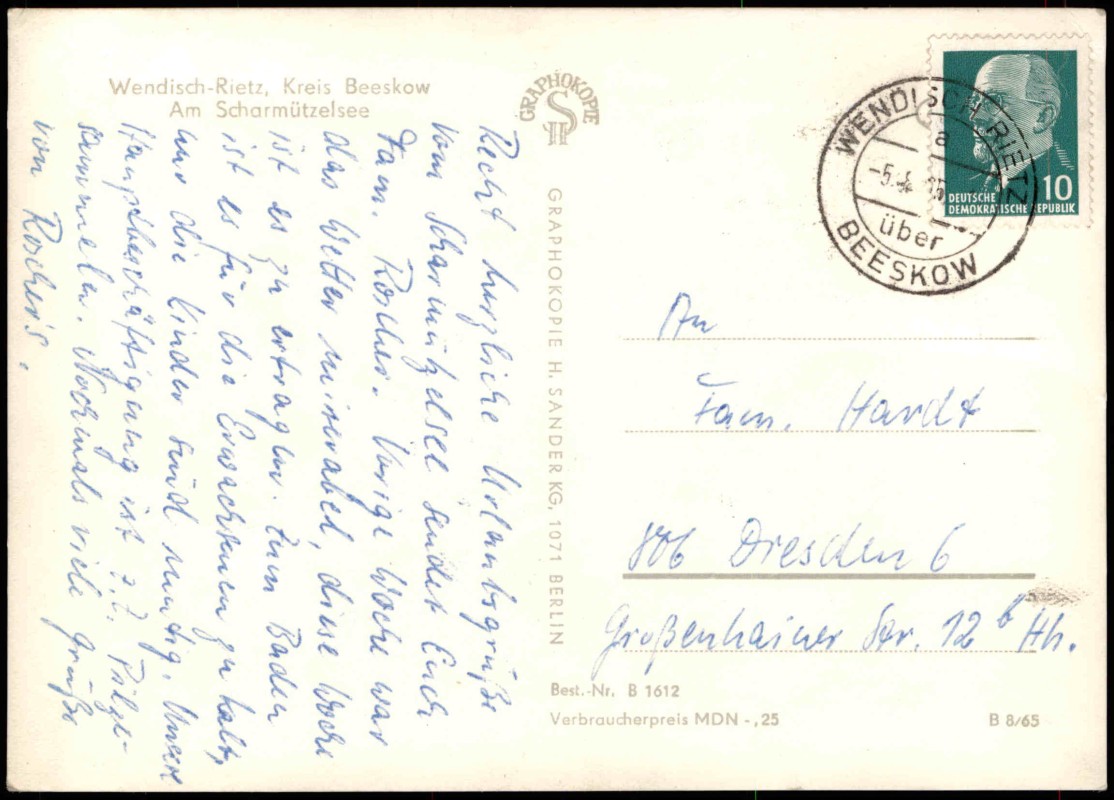 Wendisch-Rietz, Kreis Beeskow
Am Scharmützelsee
GRAPHOKOPIE
GRAPHOKOPIE H. SANDER KG, 1071 BERLIN
Recht herzliche Urlaubsgrüße
vom Scharmützelsee sendet Euch
Fam. Roscher. Vorige Woche war
das Wetter miserabel, diese Woche
ist es zu ertragen. Zum Baden
ist es für die Erwachsenen zu kalt,
nur die Kinder sind mutig. Unsere
Hauptbeschäftigung ist z.Z. Pilze-
sammeln. Nochmals viele Grüße
von Roschers.
WENDISCH RIETZ
a
-5.
über
BEESKOW
10
DEUTSCHE
DEMOKRATISCHE REPUBLIK
An
Fam. Hardt
806 Dresden 6
Großenhainer Str. 12 b Hh.
Best.-Nr. B 1612
Verbraucherpreis MDN -,25
B 8/65